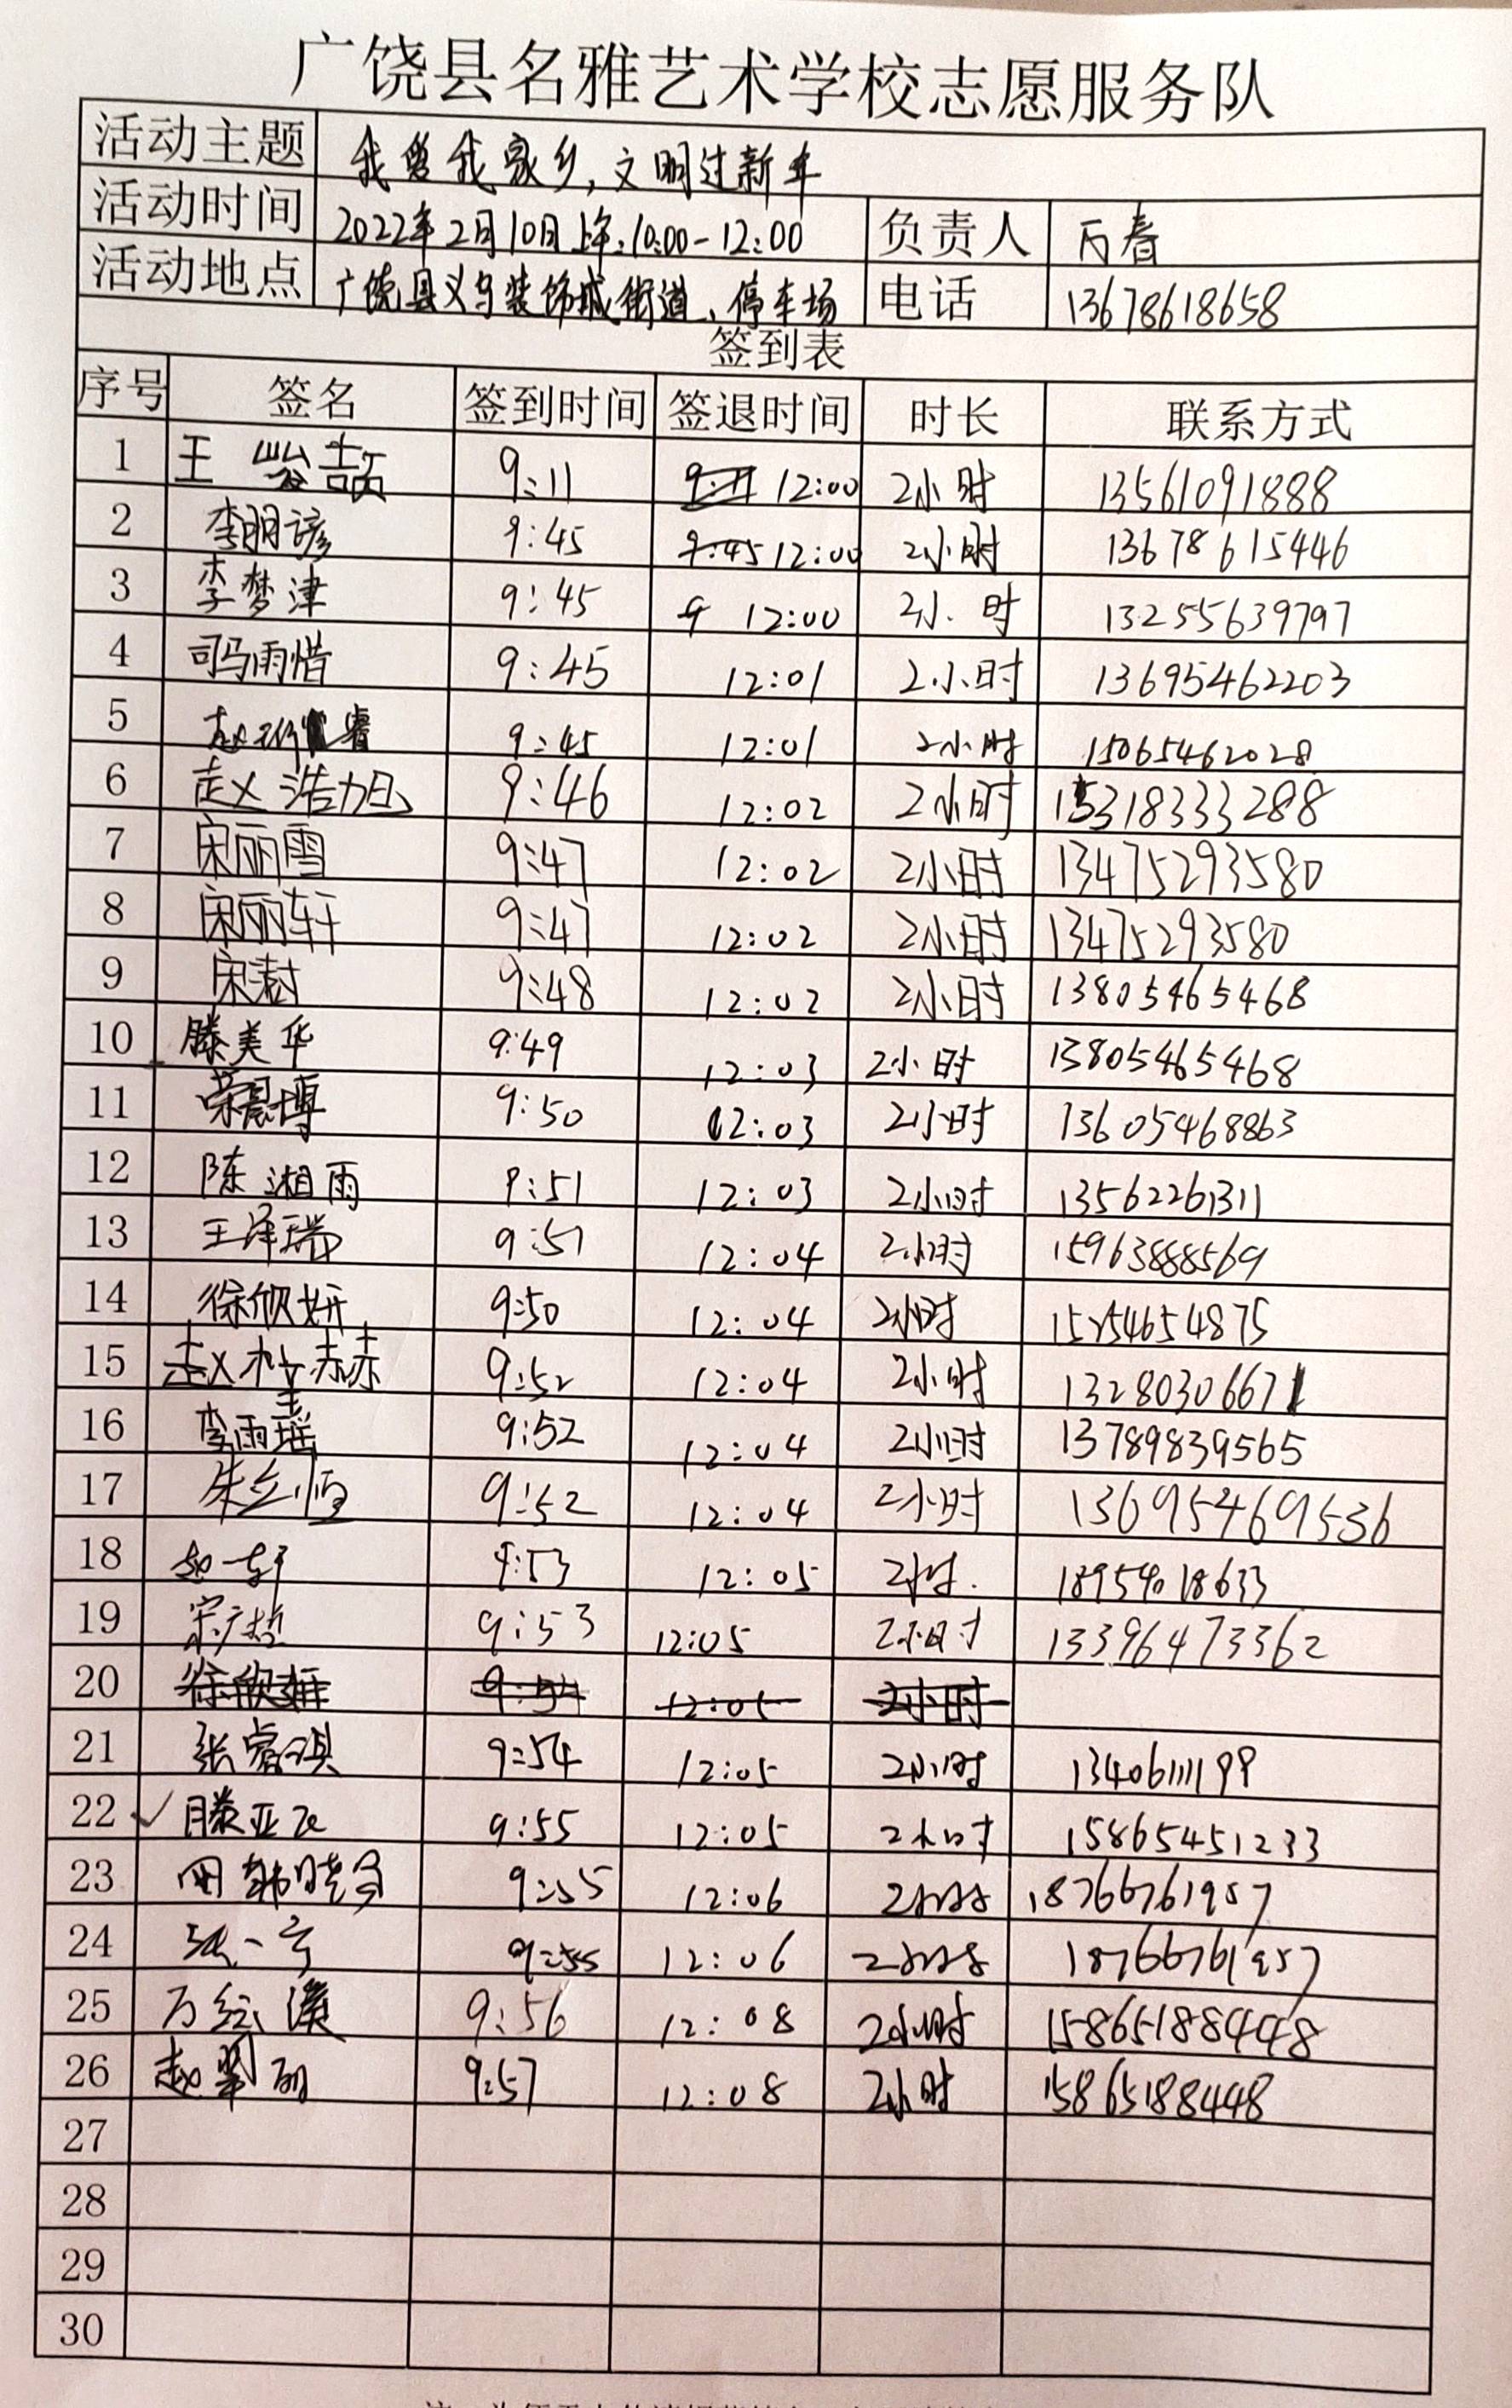 广饶县名雅艺术学校志愿服务队
活动主题 我爱我家乡,文明过新年
活动时间 2022年2月10日上午:10:00-12:00 负责人 丙春
活动地点 广饶县义乌装饰城街道、停车场 电话 13678618658
签到表
序号 签名 签到时间 签退时间 时长 联系方式
1 王 9:11 12:00 2小时 13561091888
2 李明谚 9:45 12:00 2小时 13678615446
3 李梦津 9:45 12:00 2小时 13255639797
4 司马雨惜 9:45 12:01 2小时 13695462203
5 赵 睿 9:45 12:01 2小时 15065462028
6 赵浩旭 9:46 12:02 2小时 15318333288
7 宋丽雪 9:47 12:02 2小时 13475293580
8 宋丽轩 9:47 12:02 2小时 13475293580
9 宋 9:48 12:02 2小时 13805465468
10 滕美华 9:49 12:03 2小时 13805465468
11 荣晨博 9:50 12:03 2小时 13605468863
12 陈湘雨 9:51 12:03 2小时 13562261311
13 王泽瑞 9:51 12:04 2小时 15963888569
14 徐欣妍 9:50 12:04 2小时 15254654875
15 赵 9:52 12:04 2小时 13280306671
16 李雨瑶 9:52 12:04 2小时 13789839565
17 朱立恒 9:52 12:04 2小时 13695469536
18 赵一轩 9:53 12:05 2小时 18954018633
19 宋广哲 9:53 12:05 2小时 13396473362
20 徐欣妍 9:54 12:05 2小时
21 张睿琪 9:54 12:05 2小时 13406111199
22 滕亚飞 9:55 12:05 2小时 15865451233
23 9:55 12:06 2小时 18766761957
24 张一 9:55 12:06 2小时 18766761957
25 万 溪 9:56 12:08 2小时 15865188448
26 赵翠丽 9:57 12:08 2小时 15865188448
27
28
29
30